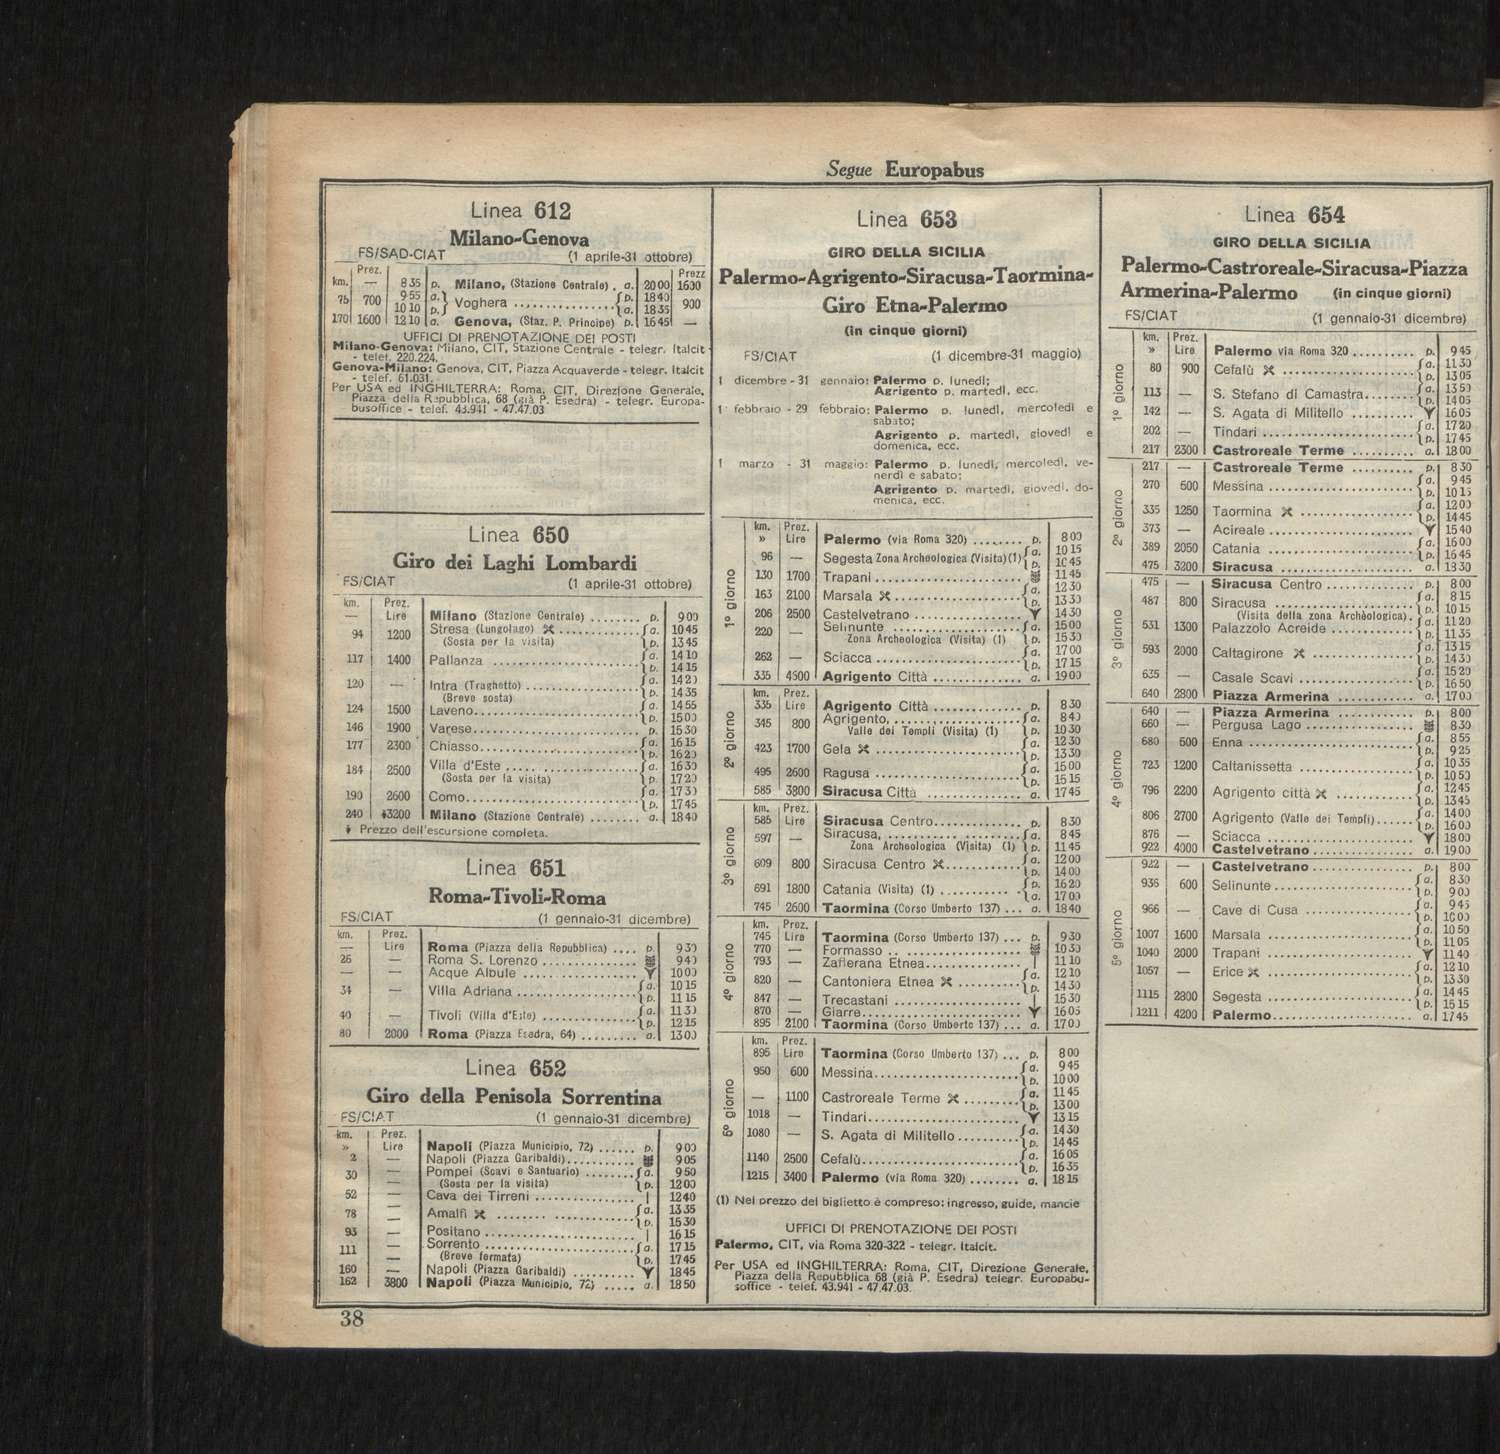 Segue Europabus
Linea 612
Milano-Genova
FS/SAD-CIAT (1 aprile-31 ottobre)
km. Prez. Prezz
— 8 35 p. Milano, (Stazione Centrale) . a. 20 00 1600
75 700 9 55 a. Voghera p. 18 40 900
10 10 p. a. 18 35
170 1600 12 10 a. Genova, (Staz. P. Principe) p. 16 45 —
UFFICI DI PRENOTAZIONE DEI POSTI
Milano-Genova: Milano, CIT, Stazione Centrale - telegr. Italcit
- telef. 220.224.
Genova-Milano: Genova, CIT, Piazza Acquaverde - telegr. Italcit
- telef. 61.031.
Per USA ed INGHILTERRA: Roma, CIT, Direzione Generale,
Piazza della Repubblica, 68 (già P. Esedra) - telegr. Europa-
busoffice - telef. 43.941 - 47.47.03
Linea 650
Giro dei Laghi Lombardi
FS/CIAT (1 aprile-31 ottobre)
km. Prez.
— Lire Milano (Stazione Centrale) p. 9 00
94 1200 Stresa (Lungolago) a. 10 45
(Sosta per la visita) p. 13 45
117 1400 Pallanza a. 14 10
p. 14 15
120 — Intra (Traghetto) a. 14 20
(Breve sosta) p. 14 35
124 1500 Laveno a. 14 55
p. 15 00
146 1900 Varese p. 15 30
177 2300 Chiasso a. 16 15
p. 16 20
184 2500 Villa d'Este a. 16 30
(Sosta per la visita) p. 17 20
190 2600 Como a. 17 30
p. 17 45
240 3200 Milano (Stazione Centrale) a. 18 40
Prezzo dell'escursione completa.
Linea 651
Roma-Tivoli-Roma
FS/CIAT (1 gennaio-31 dicembre)
km. Prez.
— Lire Roma (Piazza della Repubblica) p. 9 30
26 — Roma S. Lorenzo 9 40
— — Acque Albule 10 00
34 — Villa Adriana a. 10 15
p. 11 15
40 — Tivoli (Villa d'Este) a. 11 30
p. 12 15
80 2000 Roma (Piazza Esedra, 64) a. 13 00
Linea 652
Giro della Penisola Sorrentina
FS/CIAT (1 gennaio-31 dicembre)
km. Prez.
» Lire Napoli (Piazza Municipio, 72) p. 9 00
2 — Napoli (Piazza Garibaldi) 9 05
30 — Pompei (Scavi e Santuario) a. 9 50
— (Sosta per la visita) p. 12 00
52 — Cava dei Tirreni | 12 40
78 — Amalfi a. 13 35
p. 15 30
93 — Positano | 16 15
111 — Sorrento a. 17 15
— (Breve fermata) p. 17 45
160 — Napoli (Piazza Garibaldi) 18 45
162 3800 Napoli (Piazza Municipio, 72) a. 18 50
38
Linea 653
GIRO DELLA SICILIA
Palermo-Agrigento-Siracusa-Taormina-
Giro Etna-Palermo
(in cinque giorni)
FS/CIAT (1 dicembre-31 maggio)
1 dicembre - 31 gennaio: Palermo p. lunedì;
Agrigento p. martedì, ecc.
1 febbraio - 29 febbraio: Palermo p. lunedì, mercoledì e
sabato;
Agrigento p. martedì, giovedì e
domenica, ecc.
1 marzo - 31 maggio: Palermo p. lunedì, mercoledì, ve-
nerdì e sabato;
Agrigento p. martedì, giovedì, do-
menica, ecc.
km. Prez.
1º giorno
» Lire Palermo (via Roma 320) p. 8 00
96 — Segesta Zona Archeologica (Visita)(1) a. 10 15
p. 10 45
130 1700 Trapani 11 45
163 2100 Marsala a. 12 30
p. 13 30
206 2500 Castelvetrano 14 30
220 — Selinunte a. 15 00
Zona Archeologica (Visita) (1) p. 15 30
262 — Sciacca a. 17 00
p. 17 15
335 4600 Agrigento Città a. 19 00
km. Prez.
2º giorno
335 Lire Agrigento Città p. 8 30
345 800 Agrigento, a. 8 40
Valle dei Templi (Visita) (1) p. 10 30
423 1700 Gela a. 12 30
p. 13 30
495 2600 Ragusa a. 15 00
p. 15 15
585 3800 Siracusa Città a. 17 45
km. Prez.
3º giorno
585 Lire Siracusa Centro p. 8 30
597 — Siracusa, a. 8 45
Zona Archeologica (Visita) (1) p. 11 45
609 800 Siracusa Centro a. 12 00
p. 14 00
691 1800 Catania (Visita) (1) p. 16 20
a. 17 00
745 2600 Taormina (Corso Umberto 137) a. 18 40
km. Prez.
4º giorno
745 Lire Taormina (Corso Umberto 137) p. 9 30
770 — Formasso 10 30
793 — Zafferana Etnea | 11 10
820 — Cantoniera Etnea a. 12 10
p. 14 30
847 — Trecastani | 15 30
870 — Giarre 16 05
895 2100 Taormina (Corso Umberto 137) a. 17 00
km. Prez.
6º giorno
895 Lire Taormina (Corso Umberto 137) p. 8 00
950 600 Messina a. 9 45
p. 10 00
— 1100 Castroreale Terme a. 11 45
p. 13 00
1018 — Tindari 13 15
1080 — S. Agata di Militello a. 14 30
p. 14 45
1140 2500 Cefalù a. 16 05
p. 16 35
1215 3400 Palermo (via Roma 320) a. 18 15
(1) Nel prezzo del biglietto è compreso: ingresso, guide, mancie
UFFICI DI PRENOTAZIONE DEI POSTI
Palermo, CIT, via Roma 320-322 - telegr. Italcit.
Per USA ed INGHILTERRA: Roma, CIT, Direzione Generale,
Piazza della Repubblica 68 (già P. Esedra) telegr. Europabu-
soffice - telef. 43.941 - 47.47.03.
Linea 654
GIRO DELLA SICILIA
Palermo-Castroreale-Siracusa-Piazza
Armerina-Palermo (in cinque giorni)
FS/CIAT (1 gennaio-31 dicembre)
km. Prez.
1º giorno
» Lire Palermo via Roma 320 p. 9 45
80 900 Cefalù a. 11 30
p. 13 05
113 — S. Stefano di Camastra a. 13 50
p. 14 05
142 — S. Agata di Militello 16 05
202 — Tindari a. 17 20
p. 17 45
217 2300 Castroreale Terme a. 18 00
2º giorno
217 — Castroreale Terme p. 8 30
270 600 Messina a. 9 45
p. 10 15
335 1250 Taormina a. 12 00
p. 14 45
373 — Acireale 15 40
389 2050 Catania a. 16 00
p. 16 45
475 3200 Siracusa a. 13 30
3º giorno
475 — Siracusa Centro p. 8 00
487 800 Siracusa a. 8 15
(Visita della zona Archeologica). p. 10 15
531 1300 Palazzolo Acreide a. 11 20
p. 11 35
593 2000 Caltagirone a. 13 15
p. 14 30
635 — Casale Scavi a. 15 20
p. 16 50
640 2800 Piazza Armerina a. 17 00
4º giorno
640 — Piazza Armerina p. 8 00
660 — Pergusa Lago 8 30
680 600 Enna a. 8 55
p. 9 25
723 1200 Caltanissetta a. 10 35
p. 10 50
796 2200 Agrigento città a. 12 45
p. 13 45
806 2700 Agrigento (Valle dei Templi) a. 14 00
p. 16 00
876 — Sciacca 18 00
922 4000 Castelvetrano a. 19 00
5º giorno
922 — Castelvetrano p. 8 00
936 600 Selinunte a. 8 30
p. 9 00
966 — Cave di Cusa a. 9 45
p. 10 00
1007 1600 Marsala a. 10 50
p. 11 05
1040 2000 Trapani 11 40
1057 — Erice a. 12 10
p. 13 30
1115 2800 Segesta a. 14 45
p. 15 15
1211 4200 Palermo a. 17 45